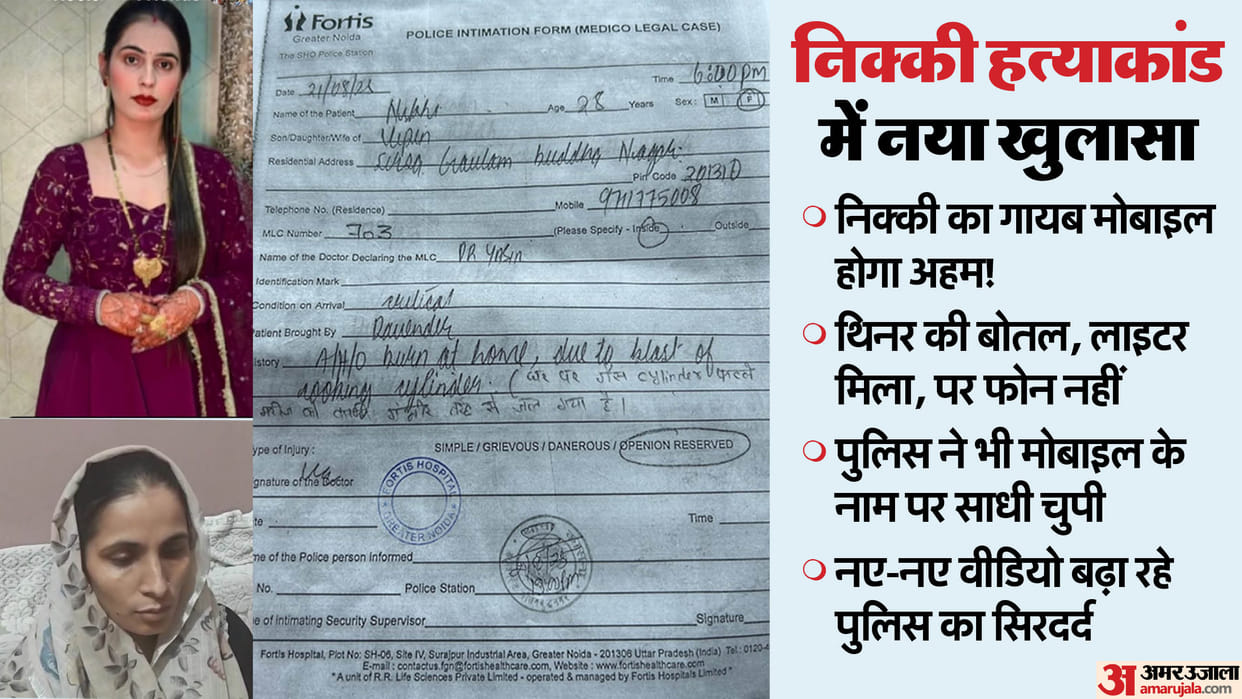 Fortis
Greater Noida
POLICE INTIMATION FORM (MEDICO LEGAL CASE)
The SHO Police Station
Date 21/08/25 Time 6:00pm
Name of the Patient Nikki Age 28 Years Sex: M F
Son/Daughter/Wife of Vipin
Residential Address Sirsa Gautam buddha Nagar
Pin Code 201310
Telephone No. (Residence) Mobile 9711775008
MLC Number 703 (Please Specify - Inside Outside
Name of the Doctor Declaring the MLC DR
Identification Mark
Condition on Arrival critical
Patient Brought By Davender
istory A/H/O burn at home, due to blast of
cooking cylinder. ( घर पर गैस cylinder फटने
से जल गया है।
ype of Injury: SIMPLE / GRIEVOUS / DANEROUS / OPENION RESERVED
gnature of the Doctor
FORTIS HOSPITAL
GREATER NOIDA
te Time
me of the Police person Informed
No. Police Station
e of Intimating Security Supervisor Signature
Fortis Hospital, Plot No: SH-06, Site IV, Surajpur Industrial Area, Greater Noida - 201306 Uttar Pradesh (India) Tel.: 0120-4
E-mail : contactus.fgn@fortishealthcare.com, Website : www.fortishealthcare.com
"A unit of R.R. Life Sciences Private Limited - operated & managed by Fortis Hospitals Limited"
निक्की हत्याकांड
में नया खुलासा
निक्की का गायब मोबाइल
होगा अहम!
थिनर की बोतल, लाइटर
मिला, पर फोन नहीं
पुलिस ने भी मोबाइल के
नाम पर साधी चुपी
नए-नए वीडियो बढ़ा रहे
पुलिस का सिरदर्द
अ अमर उजाला
amarujala.com